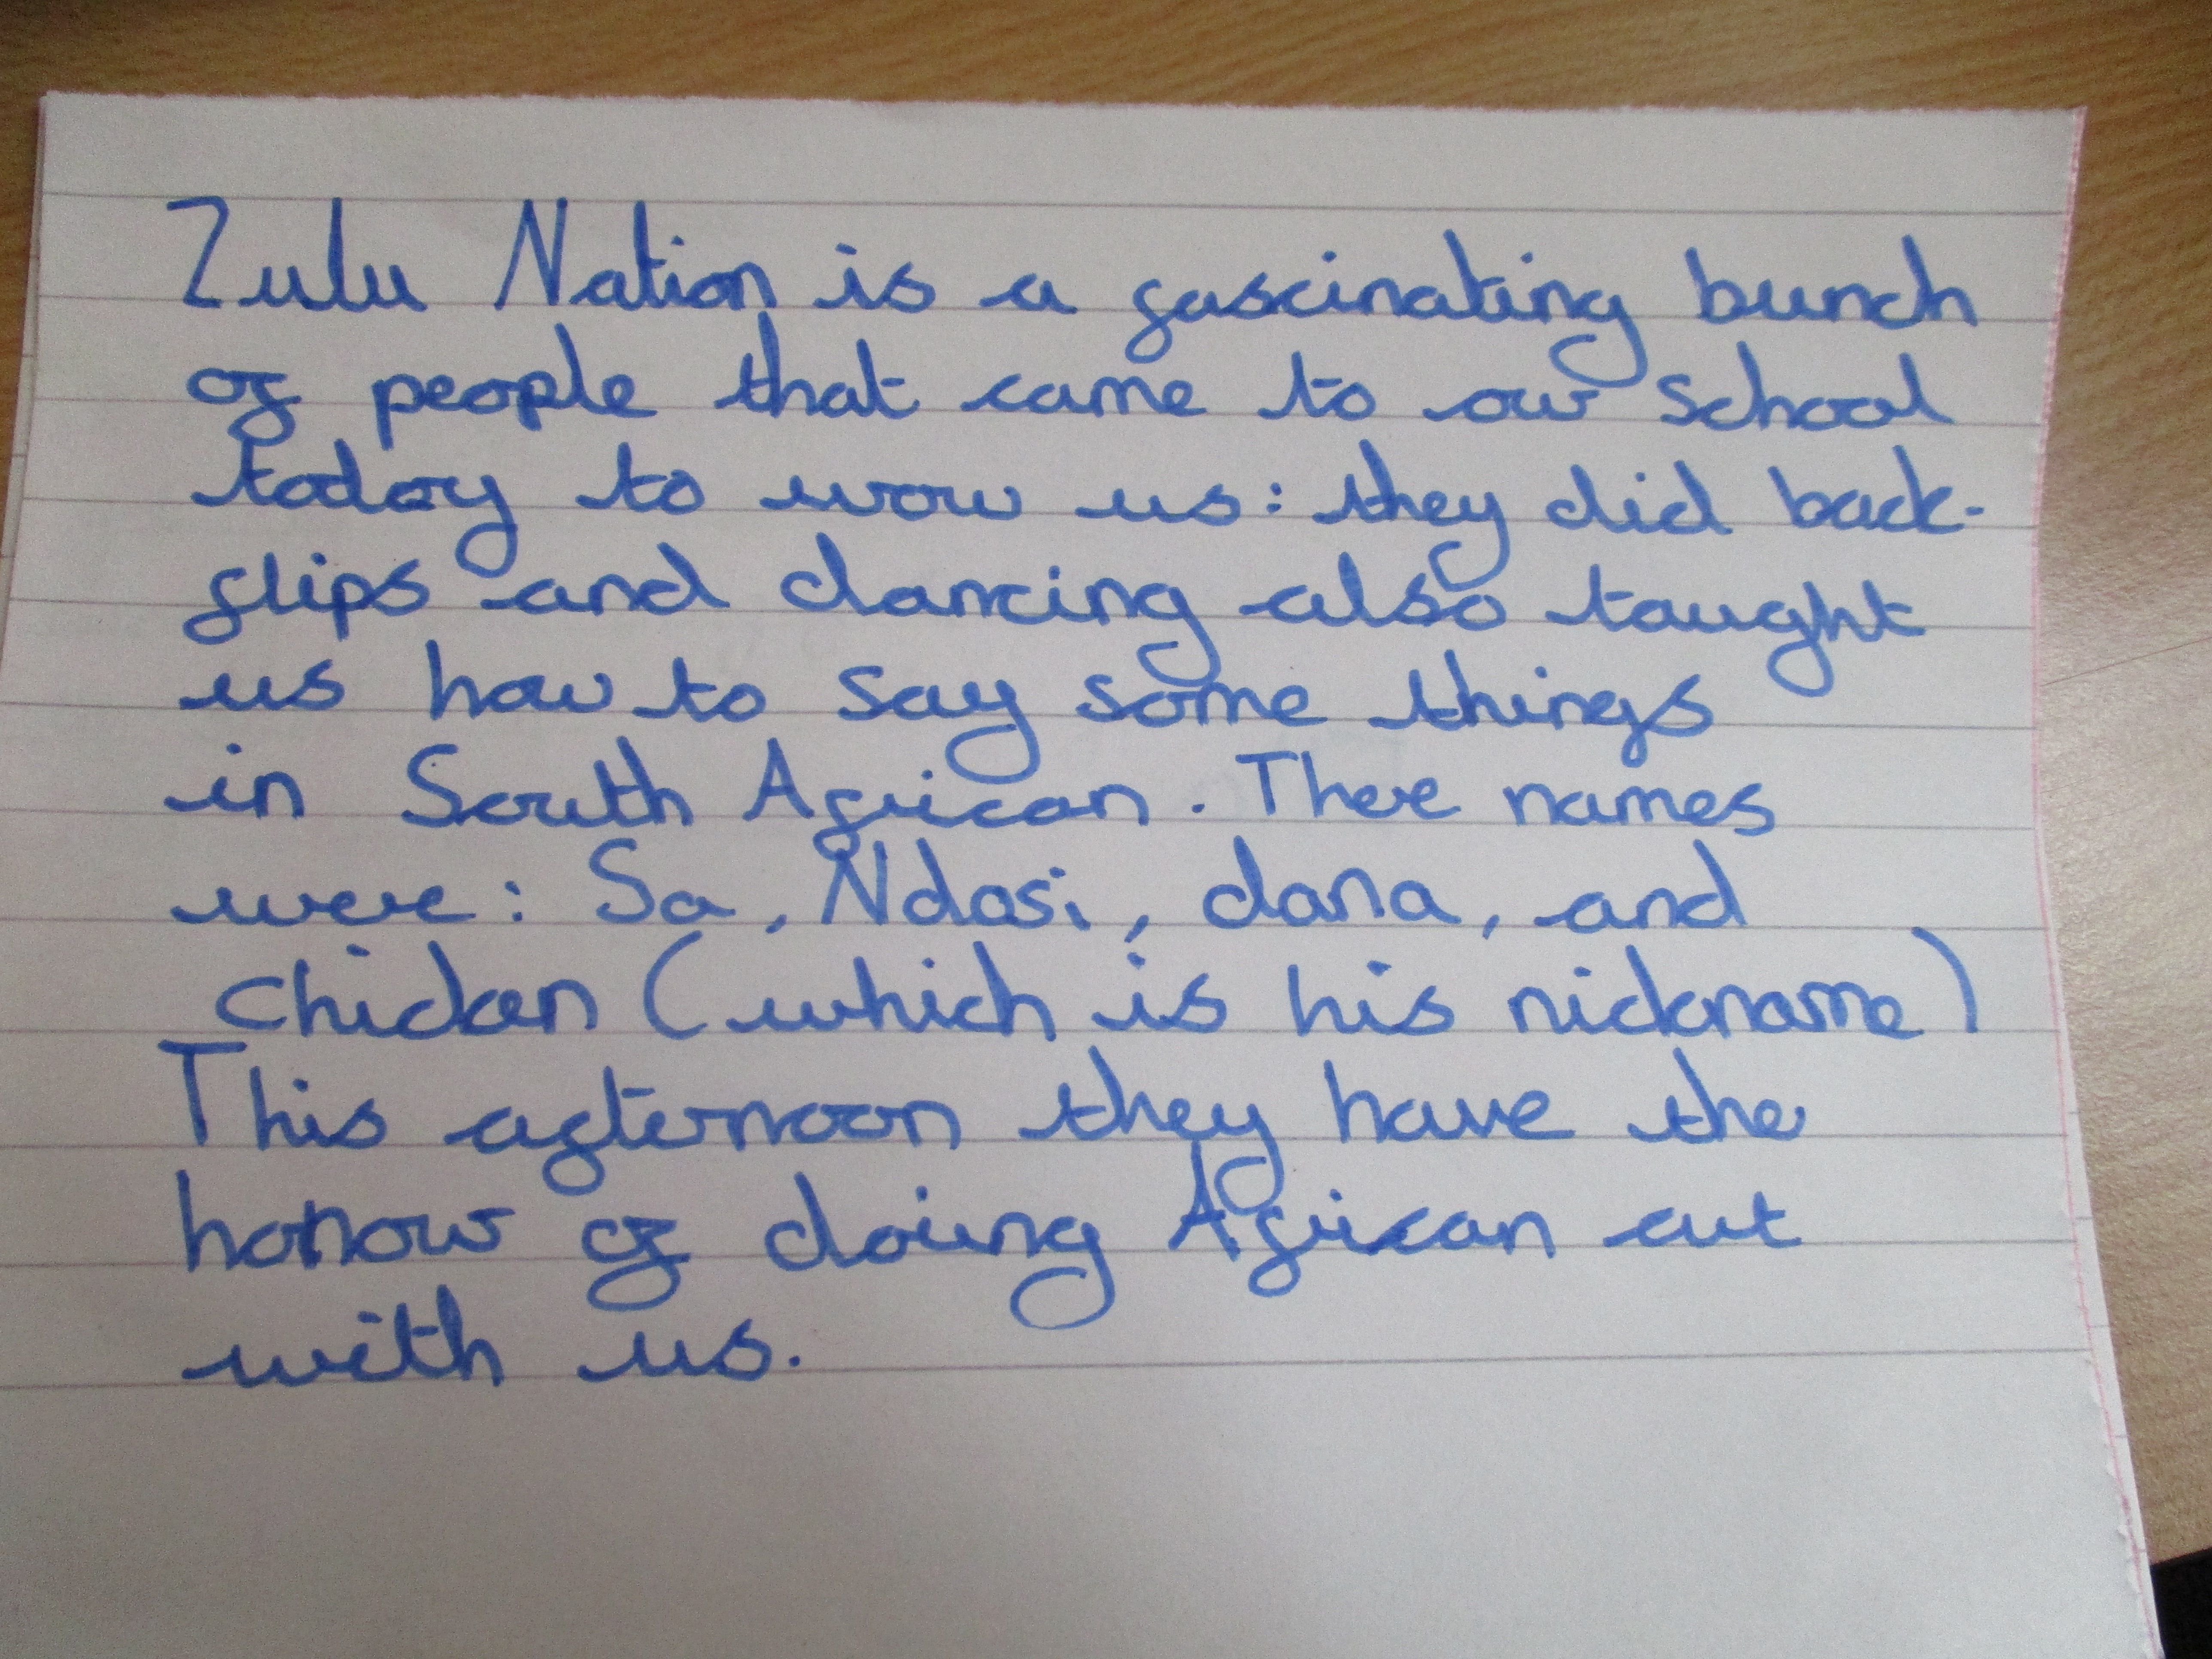 Zulu Nation is a fascinating bunch
of people that came to our school
today to wow us: they did back-
flips and dancing also taught
us how to say some things
in South African. There names
were: Sa, Ndosi, dana, and
Chicken (which is his nickname)
This afternoon they have the
honour of doing African art
with us.